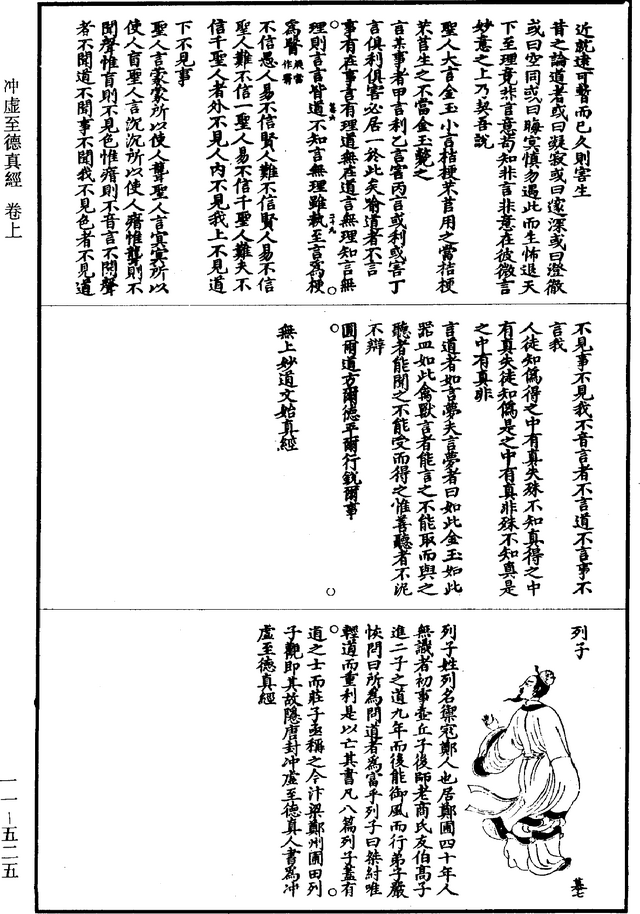 近就遠可暫而已久則害生
昔之論道者或曰凝寂或曰邃深或曰澄徹
或曰空同或曰晦冥慎勿遇此而生怖退天
下至理竟非言意苟知非言非意在彼微言
妙意之上乃契吾說
聖人大言金玉小言桔梗芣苢用之當桔梗
芣苢生之不當金玉斃之
言某事者甲言利乙言害丙言或利或害丁
言俱利俱害必居一於此矣喻道者不言
事有在事言有理道無在道言無理知言無
理則言言皆道不知言無理雖執至言為梗
為翳
不信愚人易不信賢人難不信賢人易不信
聖人難不信一聖人易不信千聖人難夫不
信千聖人者外不見人內不見我上不見道
下不見事
聖人言蒙蒙所以使人聾聖人言冥冥所以
使人盲聖人言沉沉所以使人瘖惟聾則不
聞聲惟盲則不見色惟瘖則不音言不聞聲
者不聞道不聞事不聞我不見色者不見道
不見事不見我不音言者不言道不言事不
言我
人徒知偽得之中有真失殊不知真得之中
有真失徒知偽是之中有真非殊不知真是
之中有真非
言道者如言夢夫言夢者曰如此金玉如此
器皿如此禽獸言者能言之不能取而與之
聽者能聞之不能受而得之惟善聽者不泥
不辯
圓爾道方爾德平爾行銳爾事
無上妙道文始真經
列子
列子姓列名禦寇鄭人也居鄭圃四十年人
無識者初事壺丘子後師老商氏友伯高子
進二子之道九年而後能御風而行弟子嚴
恢問曰所為問道者為富乎列子曰桀紂唯
輕道而重利是以亡其書凡八篇列子蓋有
道之士而莊子亟稱之今汴梁鄭州圃田列
子觀即其故隱唐封沖虛至德真人書為沖
虛至德真經
冲虛至德真經 卷上
一一－五二五